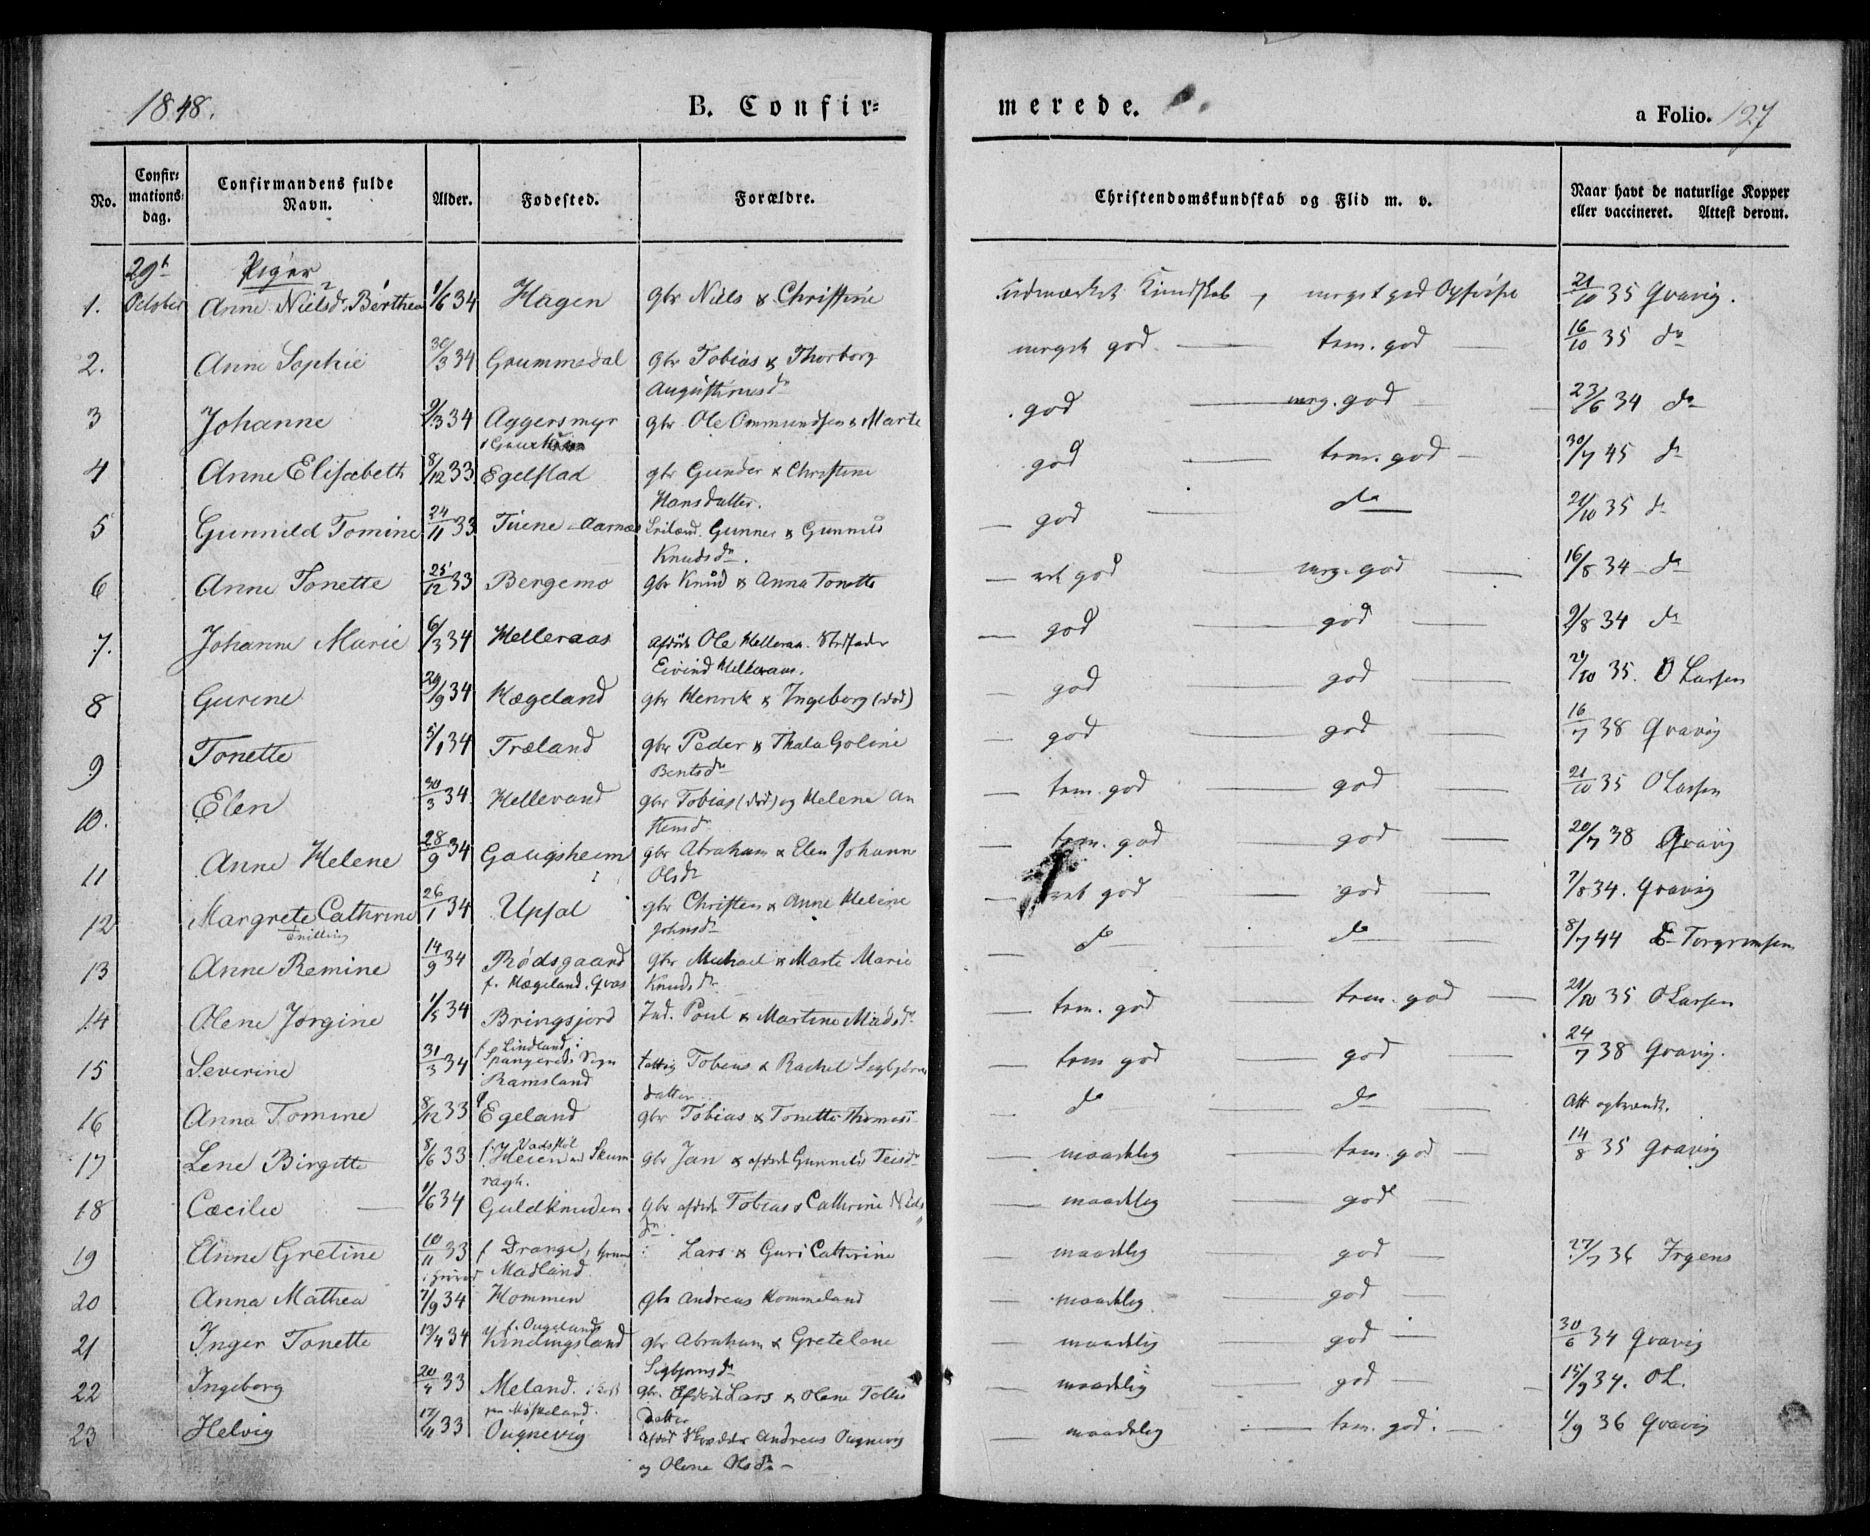 1848.
B. Confir=
merede.
a Folio. 127
No.
Confir=
mations=
dag.
Confirmandens fulde
Navn.
Alder.
Fødested.
Forældre.
Christendomskundskab og Flid m. v.
Naar havt de naturlige Kopper
eller vaccineret. Attest derom.
29t Piger
1. October Anne Nielsdr Berthea 1/6 34 Hagen Gbr Niels & Christine Kundskab, meget god Opførsel 21/10 35 Gravig.
2. Anne Sophie 30/3 34 Grummedal Gbr Tobias & Thorborg meget god — tem. god — 16/10 35 do
Augustinusdr
3 Johanne 9/3 34 Aggersmyr gbr Ole Ommundsen & Marte god — meg. god — 23/6 34 do
4 Anne Elisabeth 8/12 33 Egelstad gbr Gunder & Christine god — tem. god — 30/7 45 do
Hansdatter.
5 Gunnild Tomine 24/11 33 Tuene Aarnes Gunner & Gunnild — god — do 21/10 35 do
Knudsdr.
6 Anne Tonette 25/12 33 Bergemo Gbr Knud & Anna Tonette — ret god — meg. god — 16/8 34 do
7. Johanne Marie 6/3 34 Helleraas afdøde Ole Helleraa. Stedfader — god — god — 2/8 34 do
Eivind Helleraas.
8 Gurine 29/9 34 Hægeland gbr Henrik & Ingeborg (død) — god — god — 21/10 35. O Larsen
9 Tonette 5/1 34 Træland gbr Peder & Thala Goline — god — god — 16/7 38 Gravig
Bentsdr
10. Elen 30/3 34. Hellerand gbr Tobias (død) og Helene An — tem. god — god — 21/10 35 O Larsen
stensdr
11 Anne Helene 28/9 34 Gaugsheim gbr Abraham & Elen Johanne — tem. god — god — 20/7 38 Gravig
Olsdr
12 Margrete Cathrine 26/1 34 Upsal gbr Christen & Anne Helene — ret god — god — 7/8 34. Gravig
Tvilling
Johnsdr
13 Anne Remine 14/9 34 Rødsgaard gbr Michael & Marte Marie — do — do — 8/7 44 Torgrimsen
f. Hægeland. Knudsdr
14 Olene Jørgine 1/5 34 Bringsjord Ind. Poul & Martine Madsdr — tem. god — tem. god — 21/10 35 O Larsen
15 Severine 31/3 34 f. Lindland i
Spangereids Sogn
Ramsland Tobias & Rachel Sigbjørns — tem god — god — 24/7 38 Gravig.
datter
16 Anna Tomine 8/12 33 Egeland gbr Tobias & Tonette Thomas — do — do — Att.
17 Lene Birgitte 8/6 33 f. Heien gbr Jan & afdøde Gunnild Teisdr — maadelig — tem. god — 14/8 35 Gravig
18 Cæcilie — 1/6 34 Guldknuden gbr afdøde Tobias & Cathrine Niels — maadelig — god —
dr
19 Anne Gretine 10/11 33 f Drange, Lars & Guri Catherine — maadelig — god — 27/7 36 Irgens
Madland.
20 Anna Mathea 7/9 34 Hommen gbr Andreas Hommeland — maadelig — god —
21 Inger Tonette 13/4 34 Kindingsland gbr Abraham & Gretelene — maadelig — god — 30/6 34 Gravig
Sigbjørnsdr
22 Ingeborg 20/4 33 Meland. gbr. Afdøde Lars & Olene Tollis — maadelig — god — 15/9 34. OL.
Møskeland. datter
23 Helvig 17/4 33 Ougnevig afdød Andreas Ougnevig — maadelig — tem. god. — 1/9 36 Gravig
og Olene Olsdr —